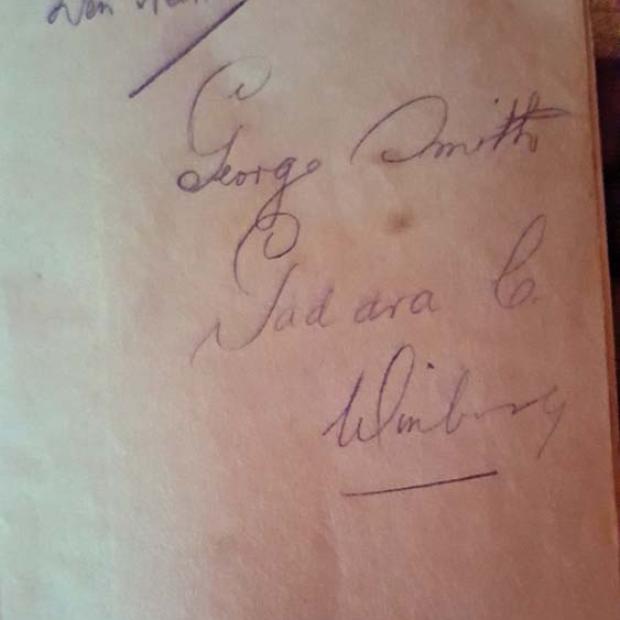 George Smith
Gadara C.
Winburg